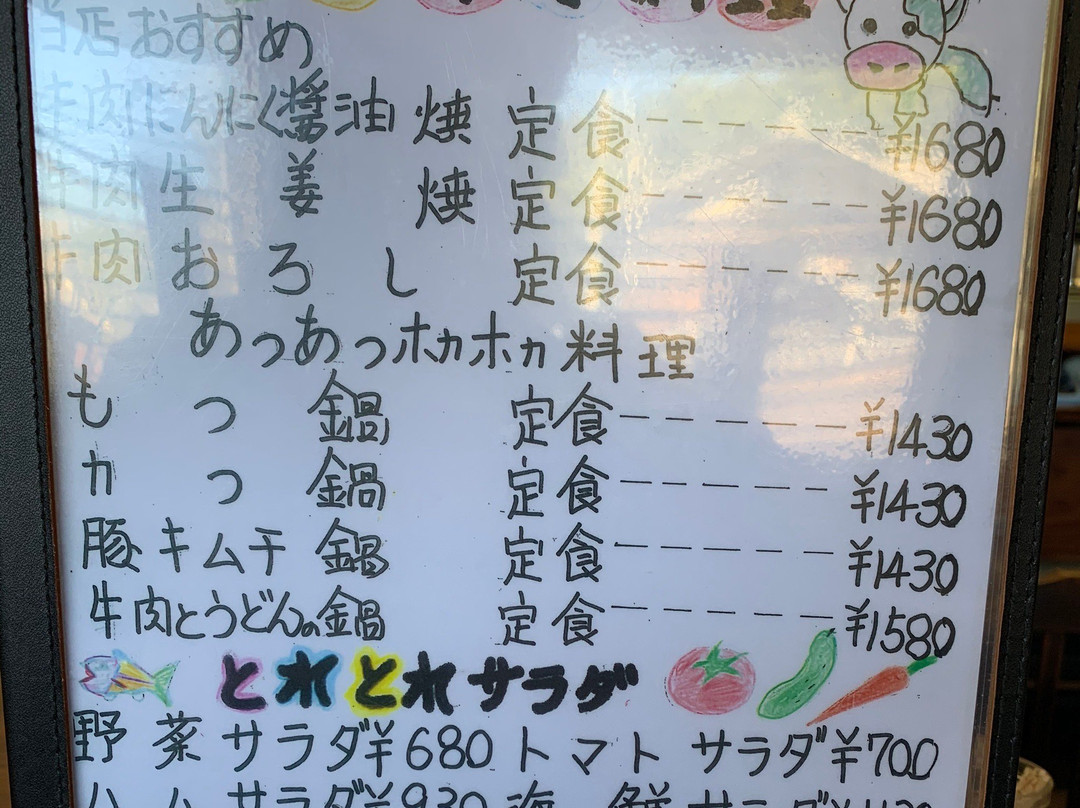 当店おすすめ
牛肉にんにく醤油焼定食-----¥1680
牛肉生姜焼定食-----¥1680
牛肉おろし定食-----¥1680
あつあつホカホカ料理
もつ鍋定食-----¥1430
カつ鍋定食-----¥1430
豚キムチ鍋定食-----¥1430
牛肉とうどんの鍋定食-----¥1580
とれとれサラダ
野菜サラダ¥680 トマトサラダ¥700
ハムサラダ¥930 海鮮サラダ